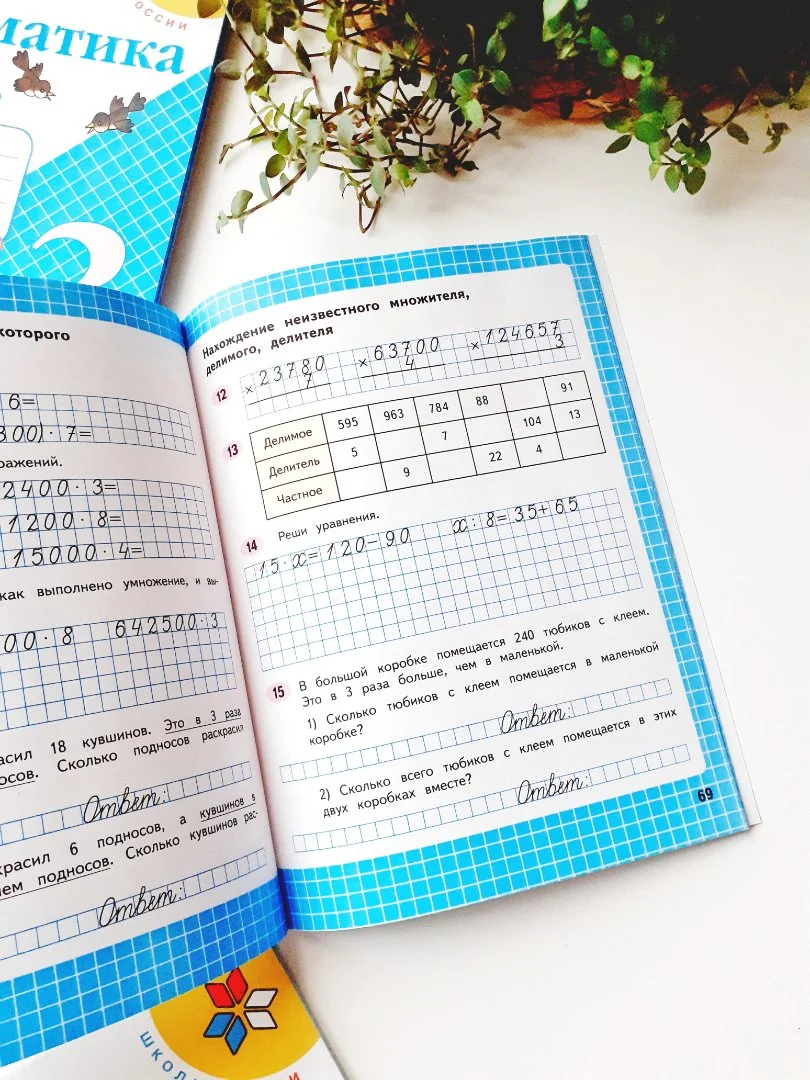 ОССИИ
матика
которого
6=
300) · 7=
ражений.
2400 · 3=
1200 · 8=
15000 · 4=
как выполнено умножение, и вы-
00 · 8 642500 · 3
асил 18 кувшинов. Это в 3 раза
носов. Сколько подносов раскрасил
Ответ:
красил 6 подносов, а кувшинов в
ем подносов. Сколько кувшинов рас-
Ответ:
Нахождение неизвестного множителя,
делимого, делителя
12 × 23780 × 63700 × 124657
7 4 3
13 Делимое 595 963 784 88 91
Делитель 5 7 104 13
Частное 9 22 4
14 Реши уравнения.
15 · x = 120 − 90 x : 8 = 35 + 65
15 В большой коробке помещается 240 тюбиков с клеем.
Это в 3 раза больше, чем в маленькой.
1) Сколько тюбиков с клеем помещается в маленькой
коробке?
Ответ:
2) Сколько всего тюбиков с клеем помещается в этих
двух коробках вместе?
Ответ:
69
ШКОЛ
И